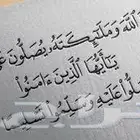 اللَّهَ وَمَلَٰٓئِكَتَهُ يُصَلُّونَ
يَٰٓأَيُّهَا الَّذِينَ ءَامَنُوا
عَلَيْهِ وَسَلِّمُوا تَسْلِيمًا